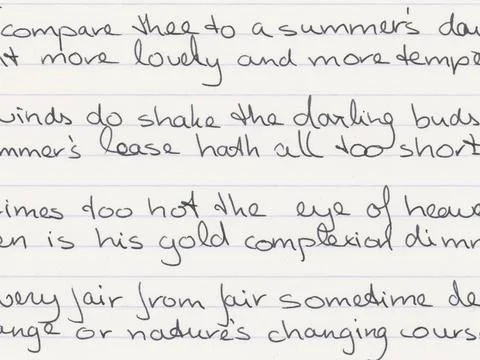 compare thee to a summer's da
t more lovely and more tempe
winds do shake the darling buds
mmer's lease hath all too short
times too hot the eye of heave
en is his gold complexion dimm
very fair from fair sometime de
ange or nature's changing cours